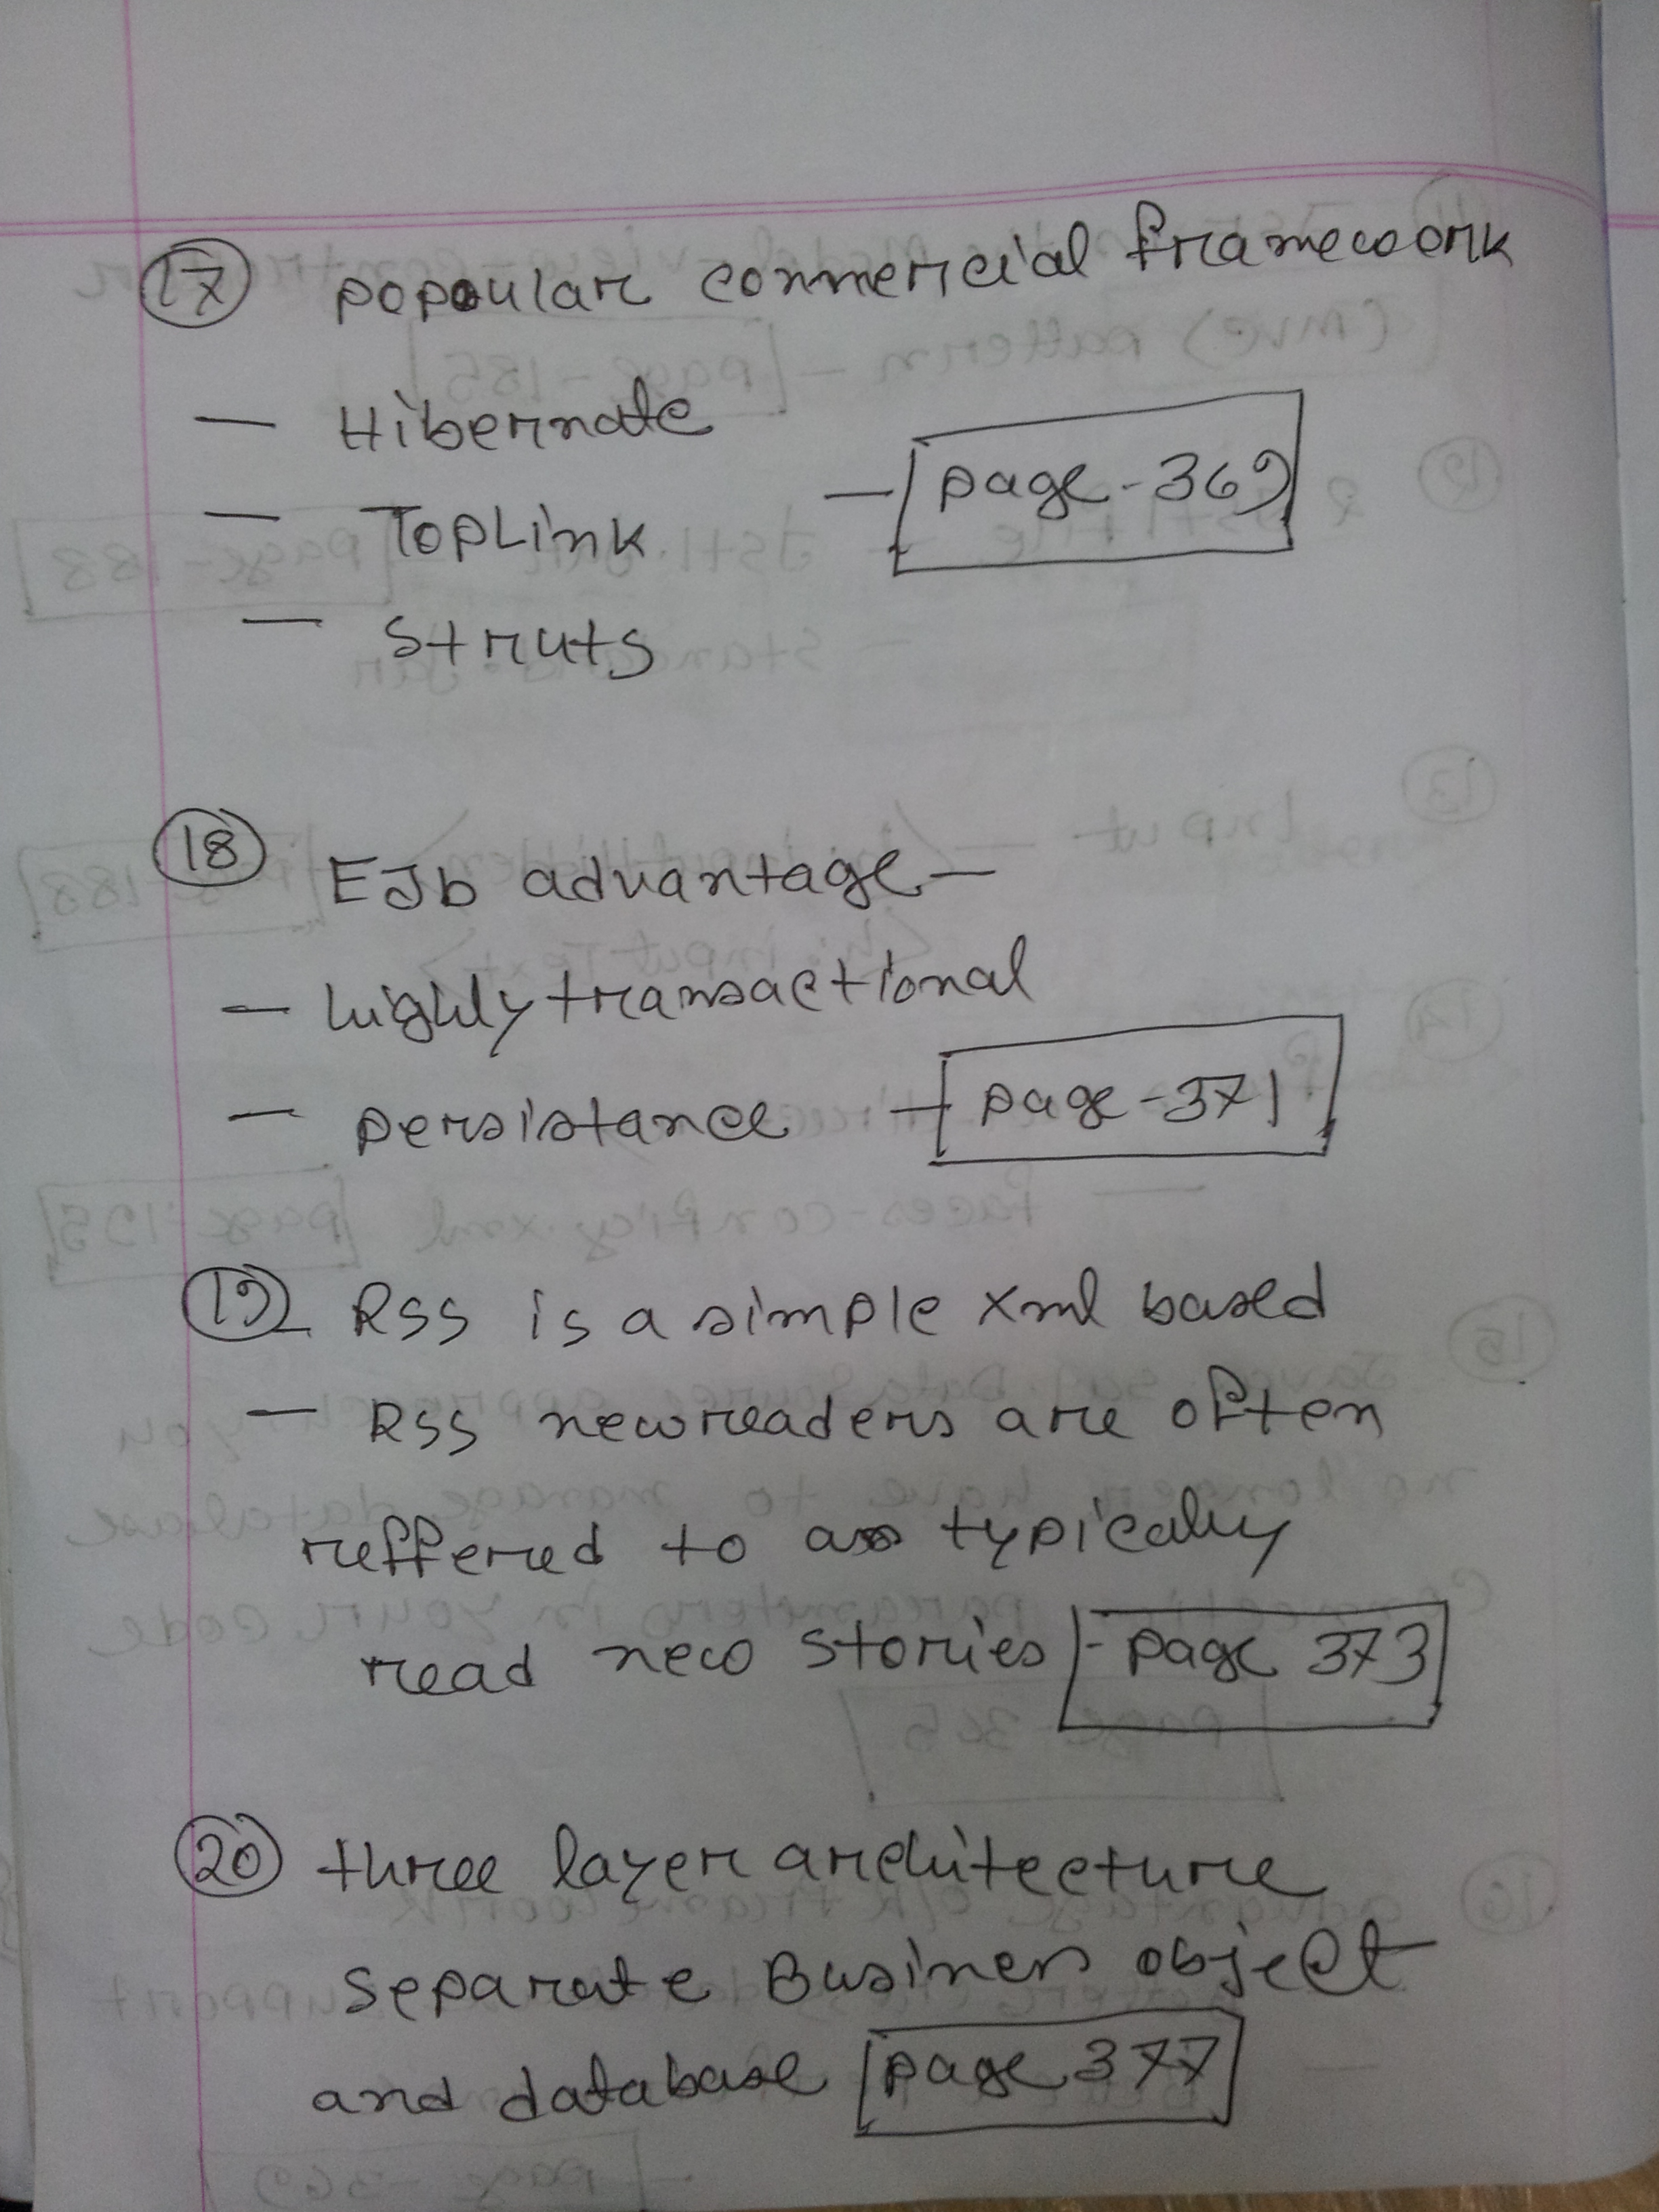 17 popoular commercial framework
- Hibernate
- page-369
- TopLink
- Struts
18 EJb advantage -
- highly transactional
- persistance - page-371
19 RSS is a simple xml based
- RSS newreaders are often
reffered to as typically
read new stories - page 373
20 three layer architecture
separate Business object
and database page 377